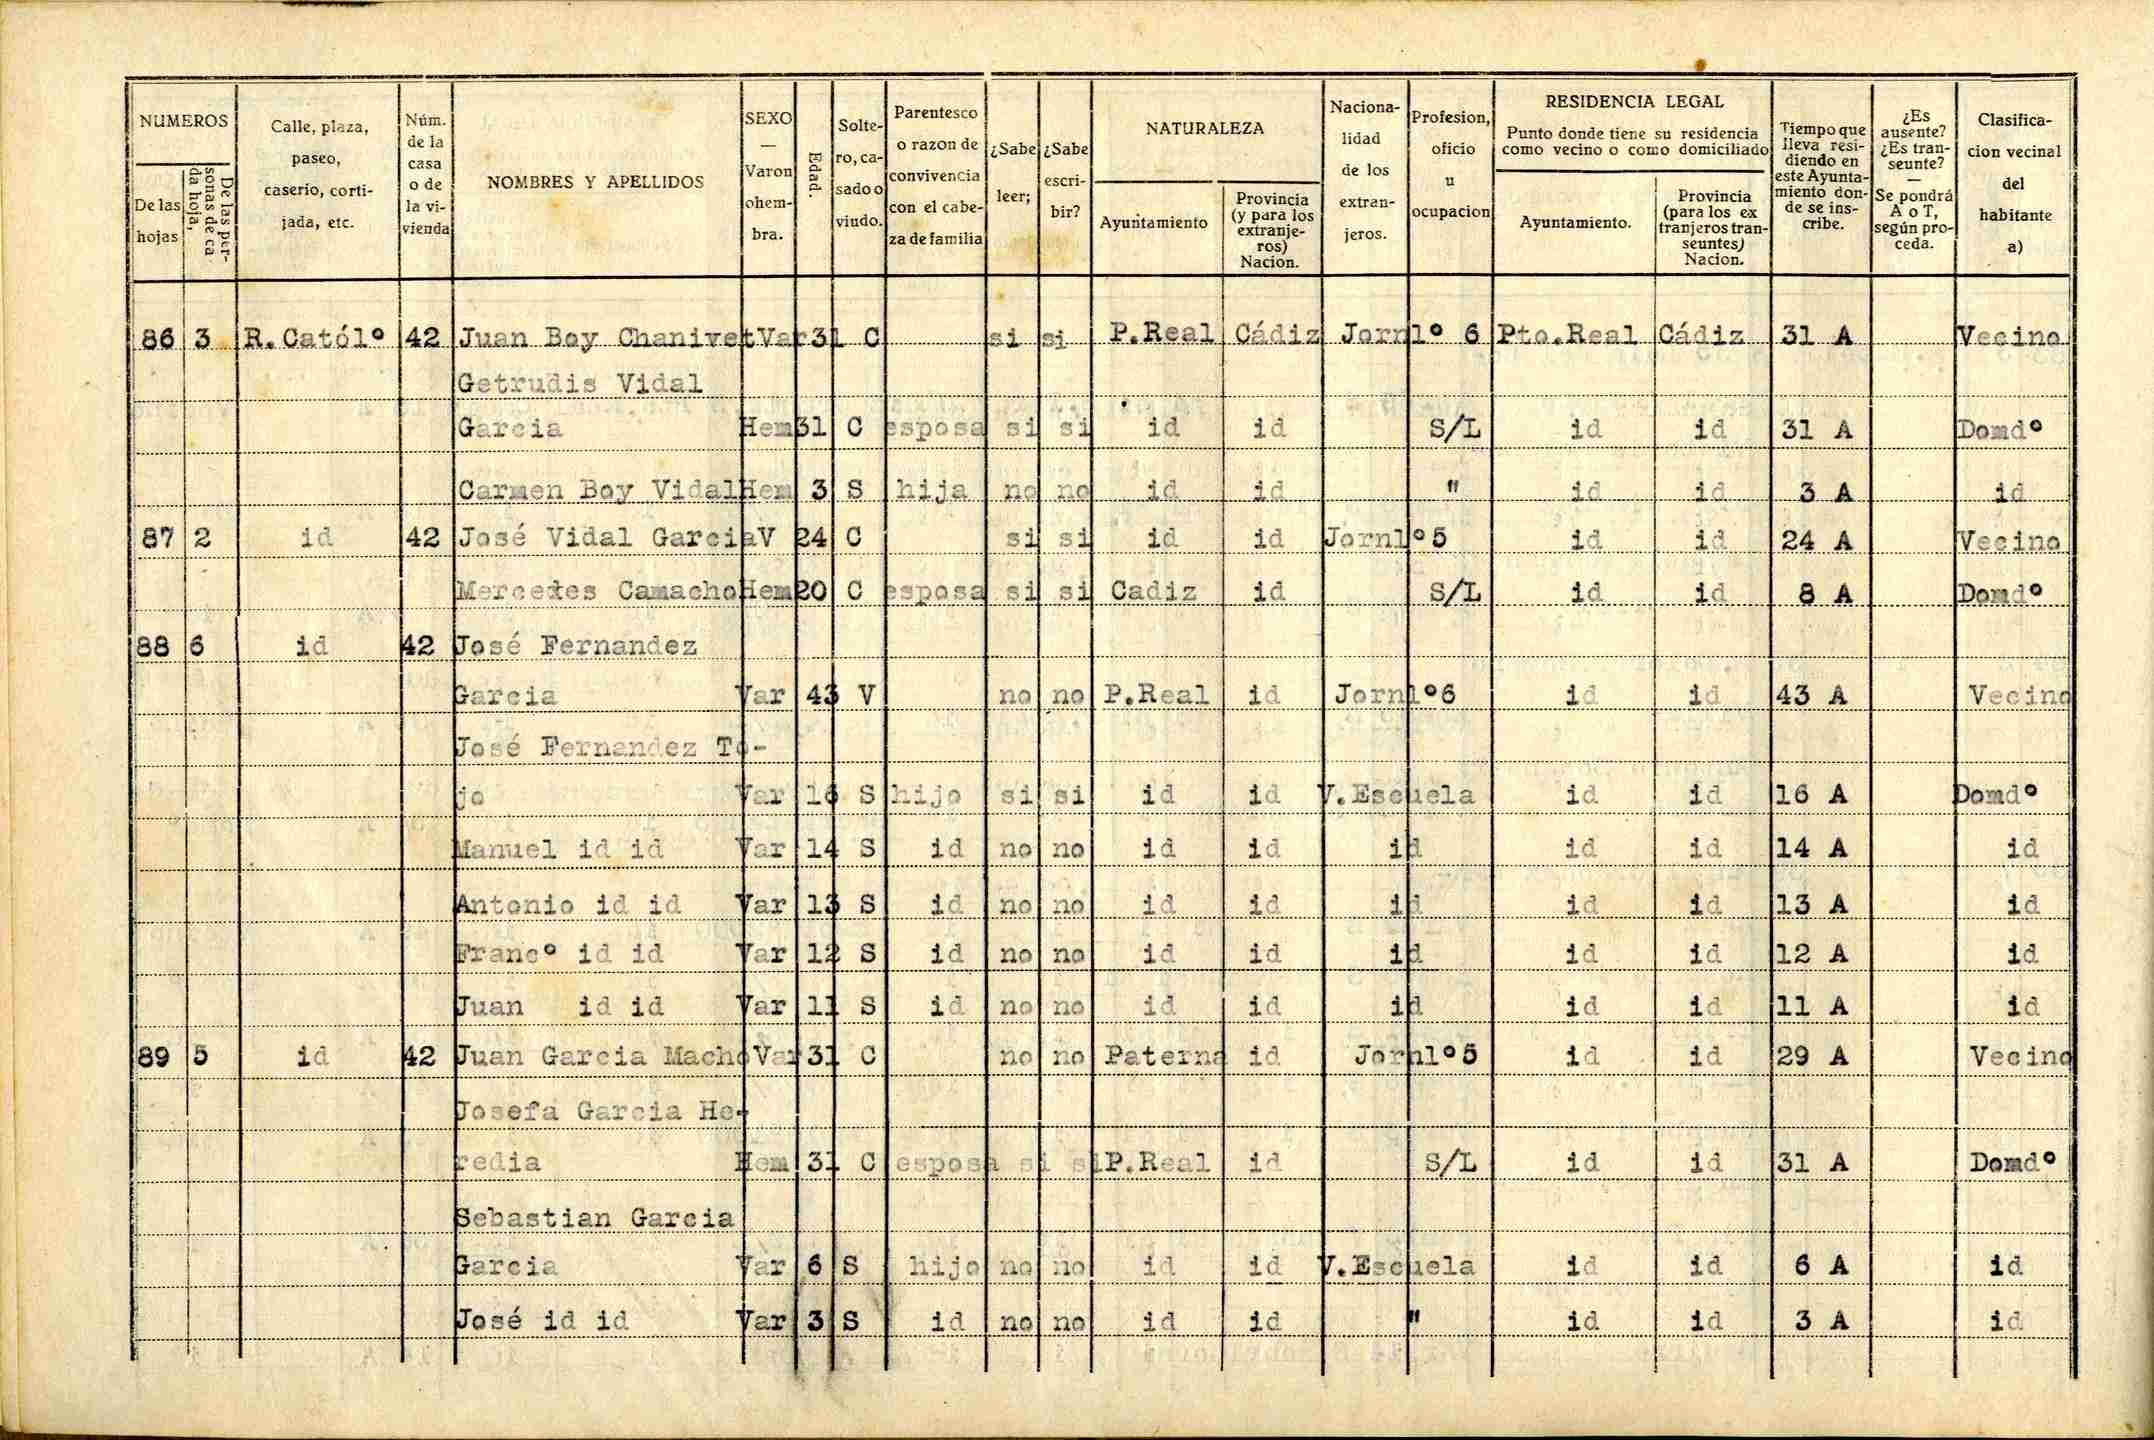 NUMEROS
De las hojas
De las personas de cada hoja,
Calle, plaza, paseo, caserio, cortijada, etc.
Núm. de la casa o de la vivienda
NOMBRES Y APELLIDOS
SEXO — Varon o hembra.
Edad.
Soltero, casado o viudo.
Parentesco o razon de convivencia con el cabeza de familia
¿Sabe leer;
¿Sabe escribir?
NATURALEZA
Ayuntamiento
Provincia (y para los extranjeros) Nacion.
Nacionalidad de los extranjeros.
Profesion, oficio u ocupacion
RESIDENCIA LEGAL
Punto donde tiene su residencia como vecino o como domiciliado
Ayuntamiento.
Provincia (para los extranjeros transeuntes) Nacion.
Tiempo que lleva residiendo en este Ayuntamiento donde se inscribe.
¿Es ausente? ¿Es transeunte? — Se pondrá A o T, según proceda.
Clasificacion vecinal del habitante a)
86 3 R.Catól° 42 Juan Boy Chanivet Var 31 C si si P.Real Cádiz Jornl° 6 Pto.Real Cádiz 31 A Vecino
Getrudis Vidal
Garcia Hem 31 C esposa si si id id S/L id id 31 A Domd°
Carmen Boy Vidal Hem 3 S hija no no id id " id id 3 A id
87 2 id 42 José Vidal Garcia V 24 C si si id id Jornl°5 id id 24 A Vecino
Mercedes Camacho Hem 20 C esposa si si Cadiz id S/L id id 8 A Domd°
88 6 id 42 José Fernandez
Garcia Var 43 V no no P.Real id Jornl°6 id id 43 A Vecino
José Fernandez To-
jo Var 16 S hijo si si id id V.Escuela id id 16 A Domd°
Manuel id id Var 14 S id no no id id id id id 14 A id
Antonio id id Var 13 S id no no id id id id id 13 A id
Franc° id id Var 12 S id no no id id id id id 12 A id
Juan id id Var 11 S id no no id id id id id 11 A id
89 5 id 42 Juan Garcia Macho Var 31 C no no Paterna id Jornl°5 id id 29 A Vecino
Josefa Garcia He-
redia Hem 31 C esposa si si P.Real id S/L id id 31 A Domd°
Sebastian Garcia
Garcia Var 6 S hijo no no id id V.Escuela id id 6 A id
José id id Var 3 S id no no id id " id id 3 A id